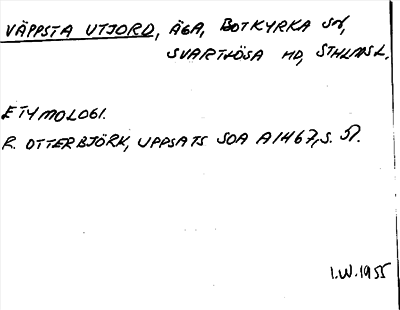 VÄPPSTA UTJORD, ÄGA, BOTKYRKA SN,
SVARTLÖSA HD, STHLMS L.
ETYMOLOGI.
R. OTTERBJÖRK, UPPSATS SOA A1467, S. 51.
I.W. 1955